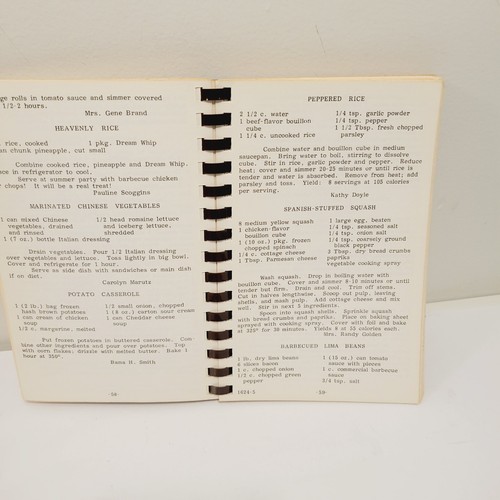 ge rolls in tomato sauce and simmer covered
1/2-2 hours.
Mrs. Gene Brand
HEAVENLY RICE
rice, cooked 1 pkg. Dream Whip
an chunk pineapple, cut small
Combine cooked rice, pineapple and Dream Whip.
ace in refrigerator to cool.
Serve at summer party with barbecue chicken
chops! It will be a real treat!
Pauline Scoggins
MARINATED CHINESE VEGETABLES
1 can mixed Chinese 1/2 head romaine lettuce
vegetables, drained and iceberg lettuce,
and rinsed shredded
1 (7 oz.) bottle Italian dressing
Drain vegetables. Pour 1/2 Italian dressing
over vegetables and lettuce. Toss lightly in big bowl.
Cover and refrigerate for 1 hour.
Serve as side dish with sandwiches or main dish
if on diet.
Carolyn Marutz
POTATO CASSEROLE
1 (2 lb.) bag frozen 1/2 small onion, chopped
hash brown potatoes 1 (8 oz.) carton sour cream
1 can cream of chicken 1 can Cheddar cheese
soup soup
1/2 c. margarine, melted
Put frozen potatoes in buttered casserole. Com
bine other ingredients and pour over potatoes. Top
with corn flakes; drizzle with melted butter. Bake 1
hour at 350°.
H. Smith
-58-
PEPPERED RICE
2 1/2 c. water 1/4 tsp. garlic powder
1 beef-flavor bouillon 1/4 tsp. pepper
cube 1 1/2 Tbsp. fresh chopped
1 1/4 c. uncooked rice parsley
Combine water and bouillon cube in medium
saucepan. Bring water to boil, stirring to dissolve
cube. Stir in rice, garlic powder and pepper. Reduce
heat; cover and simmer 20-25 minutes or until rice is
tender and water is absorbed. Remove from heat; add
parsley and toss. Yield: 8 servings at 105 calories
per serving.
Kathy Doyle
SPANISH-STUFFED SQUASH
8 medium yellow squash 1 large egg, beaten
1 chicken-flavor 1/4 tsp. seasoned salt
bouillon cube 1/4 tsp. onion salt
1 (10 oz.) pkg. frozen 1/4 tsp. coarsely ground
chopped spinach black pepper
1/4 c. cottage cheese 2 Tbsp. dry bread crumbs
1 Tbsp. Parmesan cheese paprika
vegetable cooking spray
Wash squash. Drop in boiling water with
bouillon cube. Cover and simmer 8-10 minutes or until
tender but firm. Drain and cool. Trim off stems.
Cut in halves lengthwise. Scoop out pulp, leaving
shells, and mash pulp. Add cottage cheese and mix
well. Stir in next 5 ingredients.
Spoon into squash shells. Sprinkle squash
with bread crumbs and paprika. Place on baking sheet
sprayed with cooking spray. Cover with foil and bake
at 325° for 30 minutes. Yields 8 at 55 calories each.
Mrs. Randy Golden
BARBECUED LIMA BEANS
1 lb. dry lima beans 1 (15 oz.) can tomato
4 slices bacon sauce with pieces
1 c. chopped onion 1 c. commercial barbecue
1/2 c. chopped green sauce
pepper 3/4 tsp. salt
1624-5 -59-